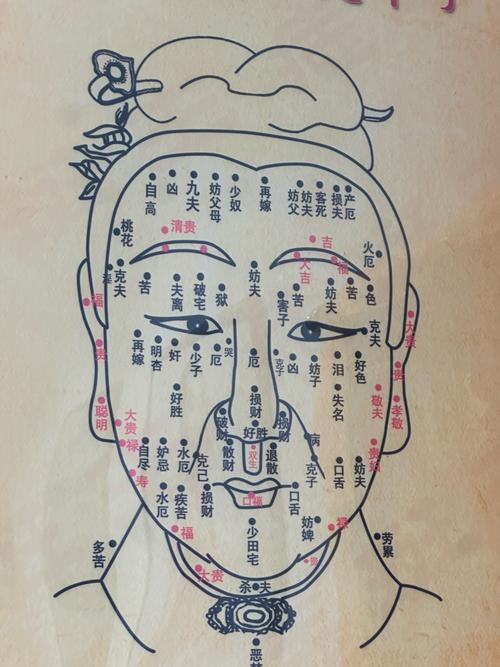 自高
凶
九夫
妨父母
少奴
再嫁
妨父
妨夫
客死
损夫
产厄
桃花
清贵
吉
火厄
大吉
福
克夫
苦
夫离
破宅
狱
妨夫
害子
苦
妨夫
苦
色
福
大贵
克夫
贵
再嫁
明杏
奸
少子
厄
哭
厄
克子
凶
妨子
泪
好色
贵
好胜
损财
失名
敬夫
孝敬
聪明
大贵
破财
好胜
损财
病
禄
自尽
妒忌
水厄
克己
散财
双生
退散
克子
口舌
妨夫
寿
水厄
疾苦
损财
口福
口舌
福
少田宅
妨婢
禄
多苦
劳累
大贵
杀夫
恶